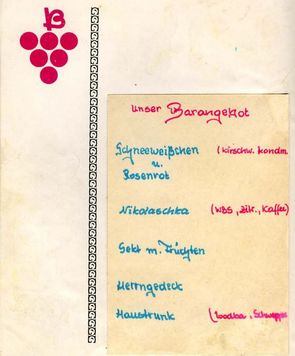 B
unser Barangebot
Schneeweißchen (Kirschw. kondm.
u.
Rosenrot
Nikolaschka (WBS, Zitr., Kaffee)
Sekt m. Früchten
Herrngedeck
Haustrunk (Wodka, Schweppes